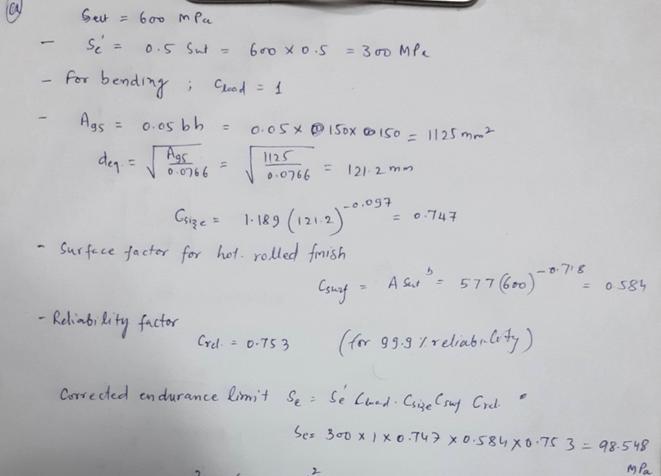 Q
Sut = 600 MPa
- Se' = 0.5 Sut = 600 x 0.5 = 300 MPa
- For bending ; Cload = 1
- A95 = 0.05 bh = 0.05 x 150 x 150 = 1125 mm²
deq. = √(A95/0.0766) = √(1125/0.0766) = 121.2 mm
Csize = 1.189 (121.2)^-0.097 = 0.747
- Surface factor for hot. rolled finish
Csurf = A Sut^b = 577 (600)^-0.718 = 0.584
- Reliability factor
Crel. = 0.753 (for 99.9 % reliability)
Corrected endurance limit Se = Se' Cload. Csize Csurf Crel.
Se = 300 x 1 x 0.747 x 0.584 x 0.753 = 98.548
MPa